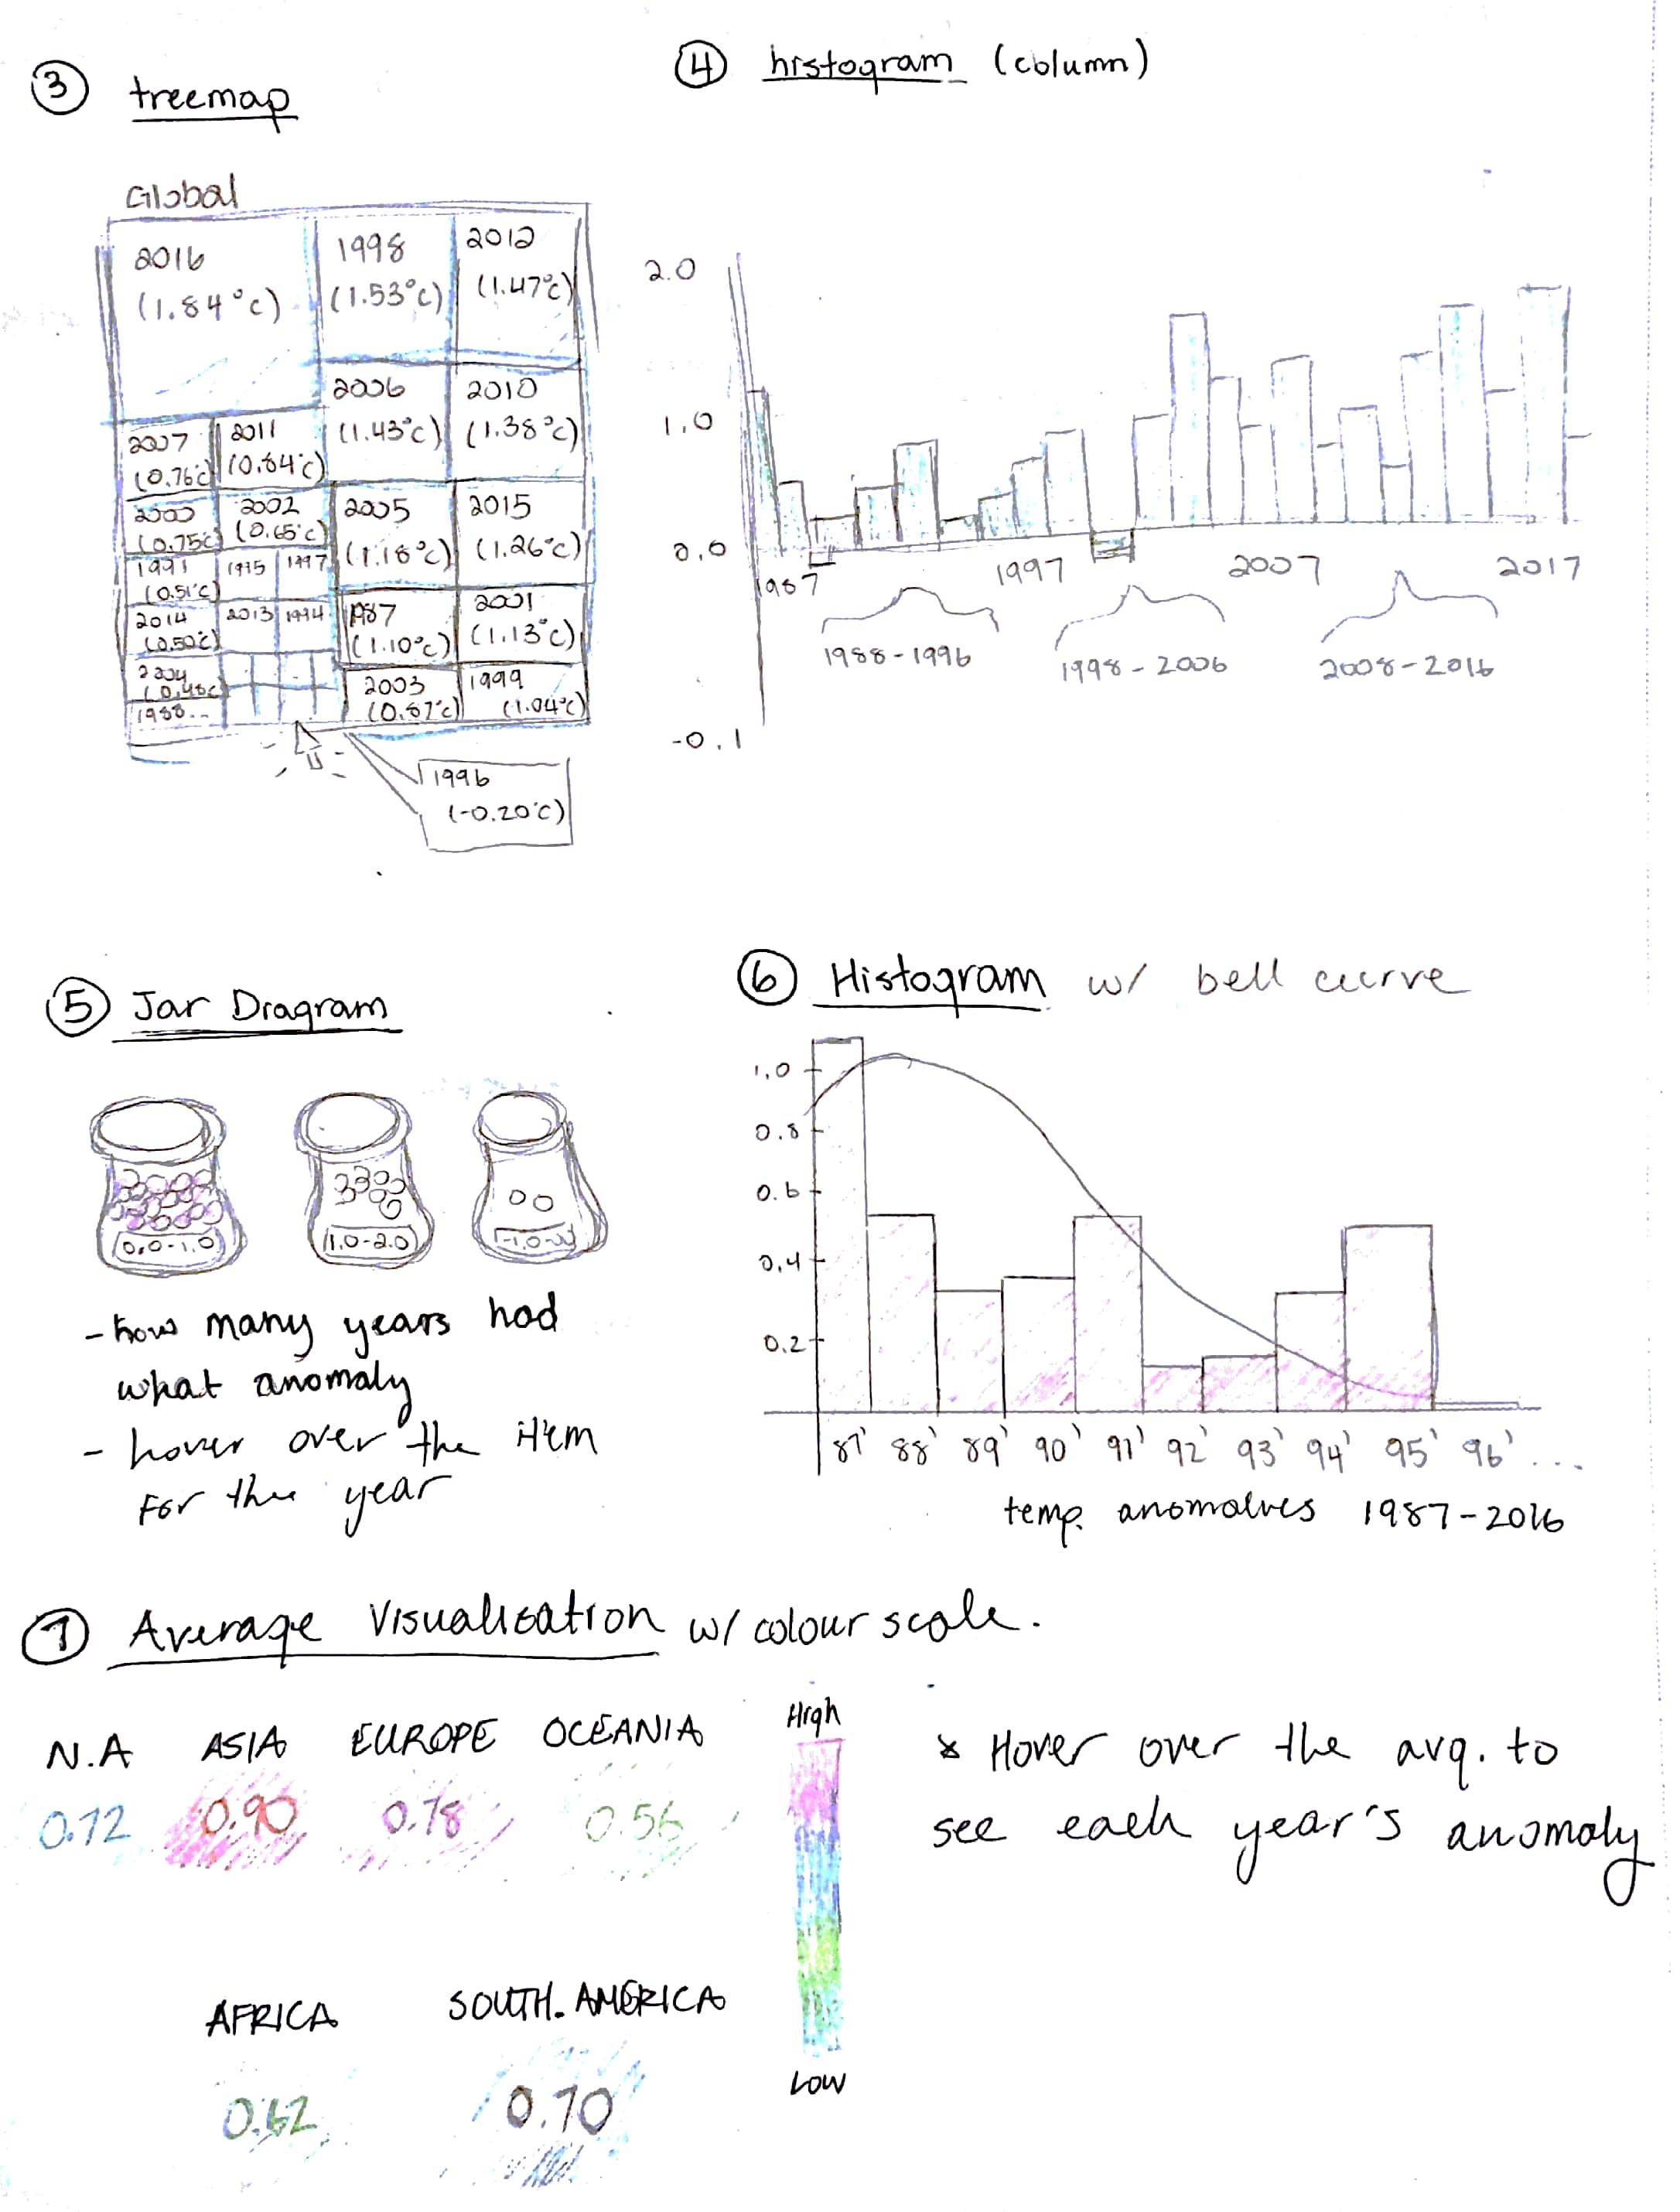 3 treemap
Global
2016
(1.84°c)
1998
(1.53°c)
2012
(1.47°c)
2006
(1.43°c)
2010
(1.38°c)
2007
(0.76c
2011
(0.84°c)
2000
(0.75c
2002
(0.65°c)
2005
(1.18°c)
2015
(1.26°c)
1991
(0.51°c)
1995
1997
2014
(0.50°c)
2013
1994
1987
(1.10°c)
2001
(1.13°c)
2004
(0.48c
1988...
2003
(0.87°c)
1999
(1.04°c)
1996
(-0.20°c)
4 histogram (column)
2.0
1.0
0.0
-0.1
1987
1997
2007
2017
1988-1996
1998-2006
2008-2016
5 Jar Diagram
0.0-1.0
1.0-2.0
- how many years had
what anomaly
- hover over the item
For the year
6 Histogram w/ bell curve
1.0
0.8
0.6
0.4
0.2
87' 88' 89' 90' 91' 92' 93' 94' 95' 96' ...
temp. anomalies 1987-2016
7 Average Visualisation w/ colour scale.
N.A ASIA EUROPE OCEANIA
0.72 0.90 0.78 0.56
AFRICA SOUTH. AMERICA
0.62 0.70
High
Low
* Hover over the avg. to
see each year's anomaly